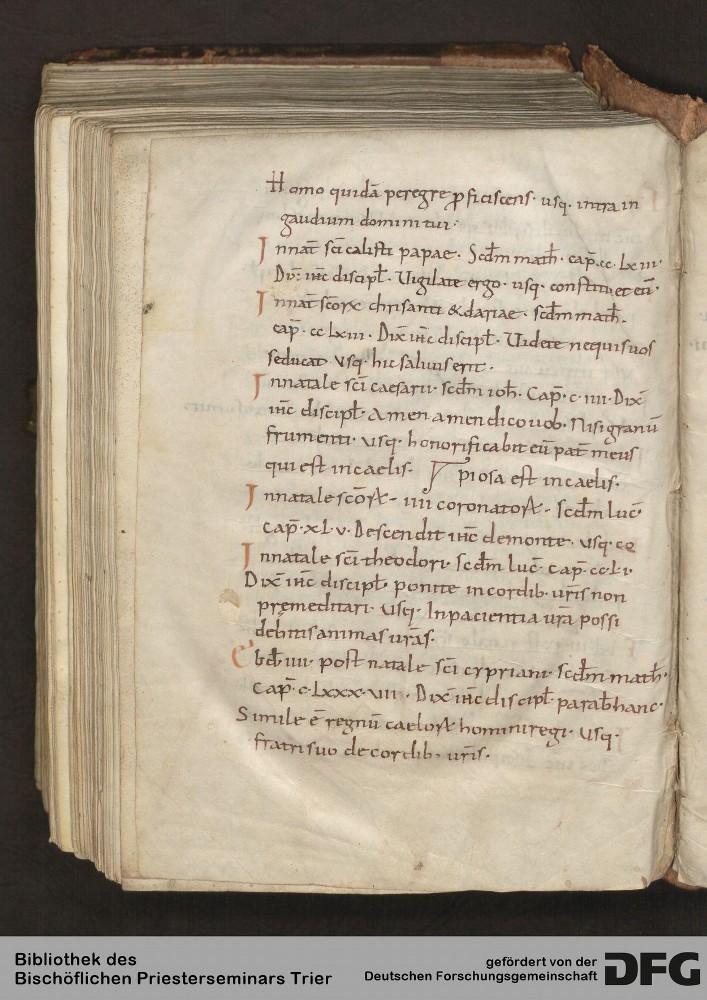 Homo quidā peregre ꝓficiscens· usq· intra in
gaudium domini tui·
Innat̄ sc̄i calisti papae· Scđm math̄· cap̄· cc· lxiii·
Dix̄ ih̄c discipl̄· Uigilate ergo· usq· constituet eū·
Innat̄ sc̄orꝝ chrisanti & dariae· scđm math̄·
cap̄· cc lxiii· Dix̄ ih̄c discipl̄· Uidete nequis uos
seducat usq· hic saluus erit·
Innatale sc̄i caesarii· scđm ioh̄· Cap̄· c· iiii· Dix̄
ih̄c discipl̄· Amen amen dico uob· Nisi granū
frumenti· usq· honorificabit eū pat̄ meus
qui est incaelis· piosa est incaelis·
Innatale sc̄orꝝ· iiii coronatorꝝ· scđm luc̄·
cap̄· xl·v· Descendit ih̄c demonte· usq·
Innatale sc̄i theodori· scđm luc̄· cap̄· cc·l·i·
Dix̄ ih̄c discipl̄· ponite in cordib· ur̄is non
premeditari· usq· Inpacientia ur̄a possi
debitis animas ur̄as·
Ebđ uii· post natale sc̄i cypriani· scđm math̄·
Cap̄· c·lxxx·uii· Dix̄ ih̄c discipl̄ parab̄ hanc·
Simile ē regnū caelorꝝ hominiregi· usq·
fratri suo de cordib· ur̄is·
Bibliothek des
Bischöflichen Priesterseminars Trier
gefördert von der
Deutschen Forschungsgemeinschaft
DFG